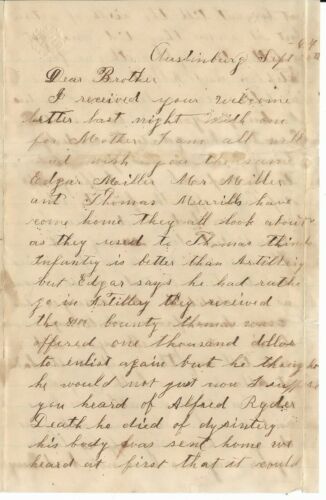 Austinburg Sept
Dear Brother
I received your welcome
letter last night with one
for Mother I am all well
and wish you the same
Edgar Miller Mr Miller
and Thomas Merrills have
come home they all look about
as they used to Thomas thinks
Infantry is better than Artillery
but Edgar says he had rather
go in Artillery they received
the bounty Thomas was
offered one thousand dollars
to enlist again but he thought
he would not just now I suppose
you heard of Alfred Ryder
Death he died of dysintery
his body was sent home we
heard at first that it could